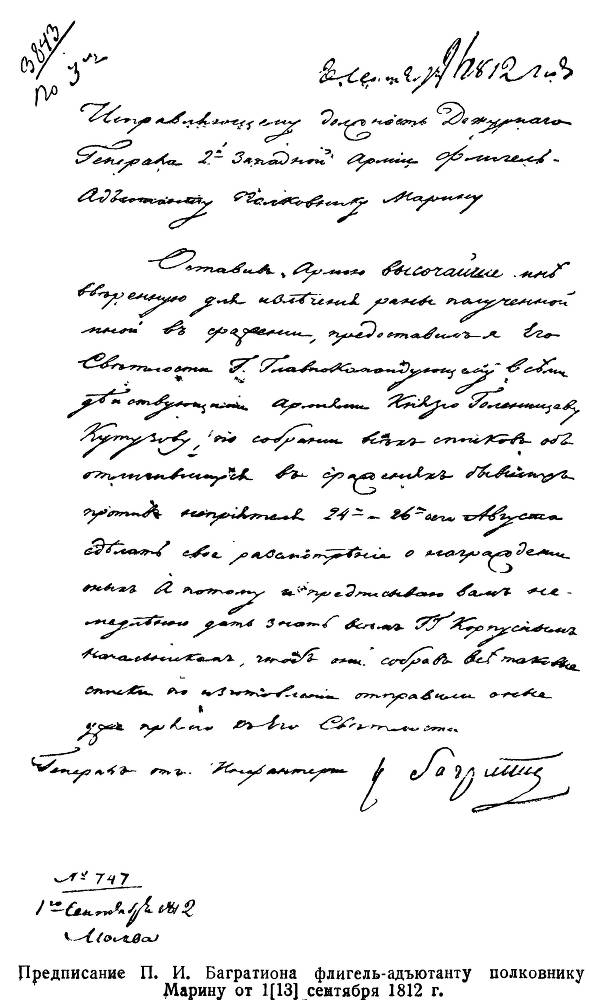 3843
По 3му
1812 года
Исправляющему должность Дежурнаго
Генерала 2й Западной Армии Флигель-
Адъютанту Полковнику Марину
Оставив Армию высочайше мне
вверенную для излечения раны полученной
мной въ сражении, предоставилъ я Его
Светлости Г. Главнокомандующему всеми
действующими Армиями Князю Голенищеву
Кутузову, по собрании всехъ списковъ объ
отличившихся въ сраженияхъ бывшихъ
противъ неприятеля 24го и 26го Августа
сделать свое разсмотрение о награждении
оныхъ А потому и предписываю вамъ не-
медленно дать знать всемъ ГГ Корпуснымъ
начальникамъ, чтобъ они собравъ все таковые
списки по изготовлении отправили оные
уже прямо къ Его Светлости
Генералъ отъ Инфантерии К Багратион
№ 747
1го Сентября 1812
Можва
Предписание П. И. Багратиона флигель-адъютанту полковнику
Марину от 1[13] сентября 1812 г.